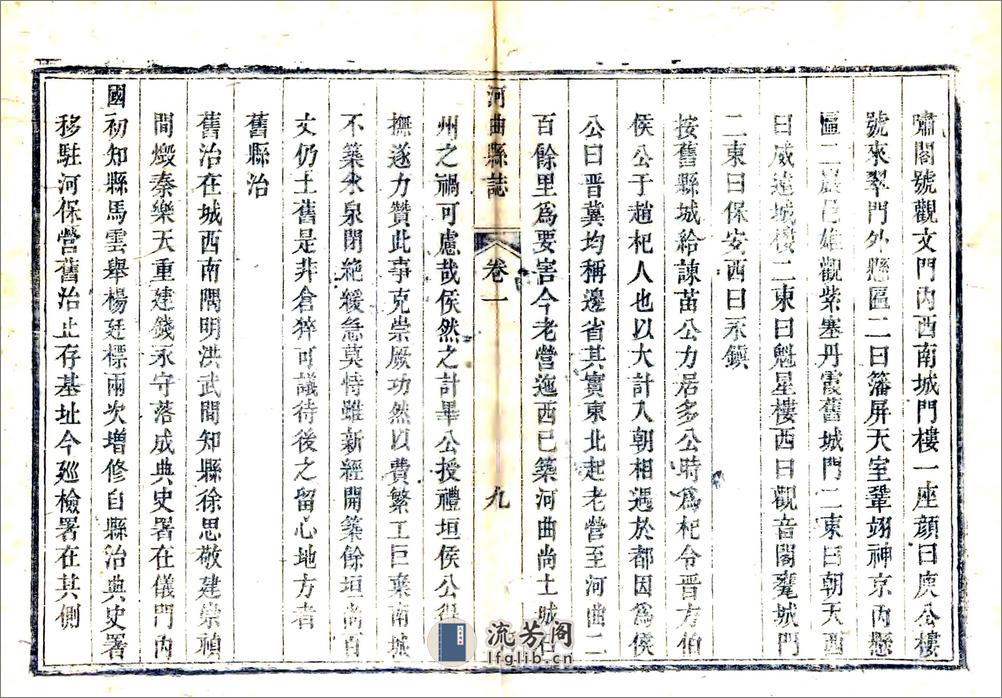 嘯閣號觀文門內西南城門樓一座顏曰庾公樓
號來翠門外懸匾二曰籓屏天室鞏翊神京內懸
匾二曰雄觀紫塞丹霞舊城門二東曰朝天西
曰威遠城樓二東曰魁星樓西曰觀音閣甕城門
二東曰保安西曰永鎮
按舊縣城給諫苗公力居多公時爲杞令晉方伯
侯公于趙杞人也以大計入朝相遇於都因爲侯
公曰晉冀均稱邊省其實東北起老營至河曲二
百餘里爲要害今老營迤西已築河曲尚土城石
河曲縣誌
卷一
九
州之禍可慮哉侯然之計畢公授禮垣侯公得
撫遂力贊此事克崇厥功然以費繁工巨棄南城
不築水泉閉絶緩急莫恃雖新經開築餘垣尚百
丈仍土舊是非倉猝可議待後之留心地方者
舊縣治
舊治在城西南隅明洪武間知縣徐思敬建崇禎
間燬秦樂天重建錢永守落成典史署在儀門內
國初知縣馬雲舉楊廷標兩次增修自縣治典史署
移駐河保營舊治止存基址今廵檢署在其側
流芳閣
lfglib.cn